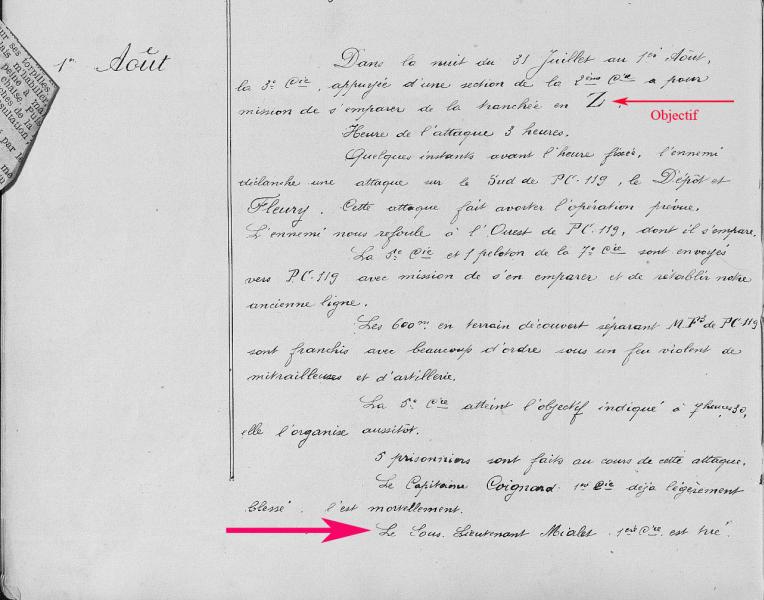 ur ses torpilles
1er Août
Dans la nuit du 31 Juillet au 1er Août,
la 3e Cie, appuyée d'une section de la 2ème Cie a pour
mission de s'emparer de la tranchée en Z.
Objectif
Heure de l'attaque 3 heures.
Quelques instants avant l'heure fixée, l'ennemi
déclanche une attaque sur le Sud de PC.119, le Dépôt et
Fleury. Cette attaque fait avorter l'opération prévue.
L'ennemi nous refoule à l'Ouest de PC.119, dont il s'empare.
La 5e Cie et 1 peloton de la 7e Cie sont envoyés
vers PC.119 avec mission de s'en emparer et de rétablir notre
ancienne ligne.
Les 600m. en terrain découvert séparant M.F3 de PC.119
sont franchis avec beaucoup d'ordre sous un feu violent de
mitrailleuses et d'artillerie.
La 5e Cie atteint l'objectif indiqué à 7 heures 30,
elle l'organise aussitôt.
5 prisonniers sont faits au cours de cette attaque.
Le Capitaine Coignard 1re Cie déjà légèrement
blessé. l'est mortellement.
Le Sous. Lieutenant Mialet. 1ère Cie. est tué.